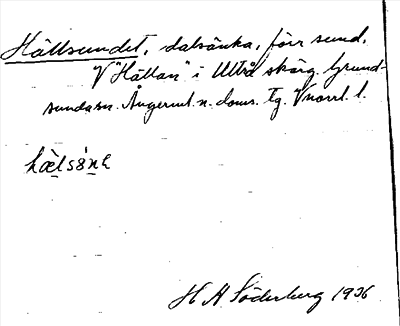 Hällsundet, dalsänka, förr sund,
V "Hällan" i Ulvö skärg. Grund-
sundasn. Ångerml. n. doms. Tg. Vnorrl. l.
H A Söderberg 1936